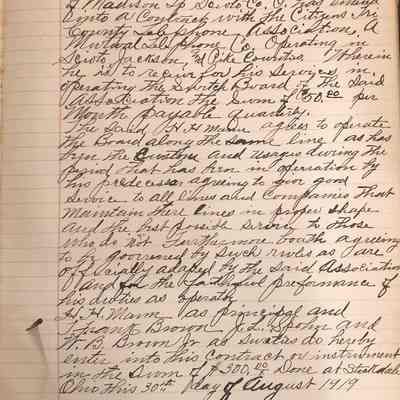 of Madison Tp Scioto Co. O. has entered
into a Contract with the Citizens Tri
County Telephone Association. A
Mutual Telephone Co. Operating in
Scioto, Jackson, and Pike Counties. Wherein
he is to receive for his services in
operating the Switch Board of the Said
Association the Sum of $50.00 per
Month payable quarterly.
The Said H. H. Mann agrees to operate
the Board along the same line as has
been the Custom and usages during the
period that has been in operation by
his predecessor agreeing to give good
service to all lines and Companies that
Maintain there lines in proper shape
and the best possible service to those
who do not Farthermore both agreeing
to be governed by such rules as are
officially adapted by the Said Association
And for the Faithful preformance of
his duties as operator
H. H. Mann as principal and
Frank Brown J. L. Spohn and
W. B. Brown Jr as sureties do herby
enter into this Contract or instrument
in the Sum of $500.00 Done at Stockdale
Ohio this 30th day of August 1919